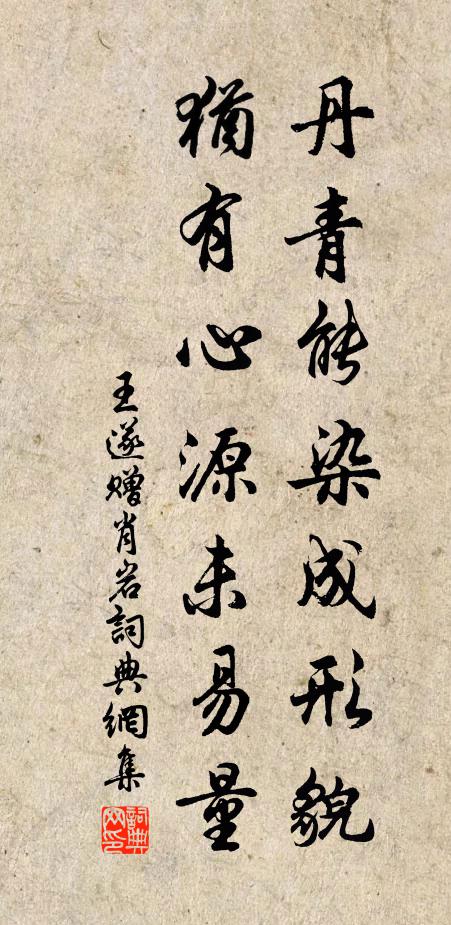 丹青能染成形貌
猶有心源未易量
王遂赠肖岩詞典網集
詞典网印